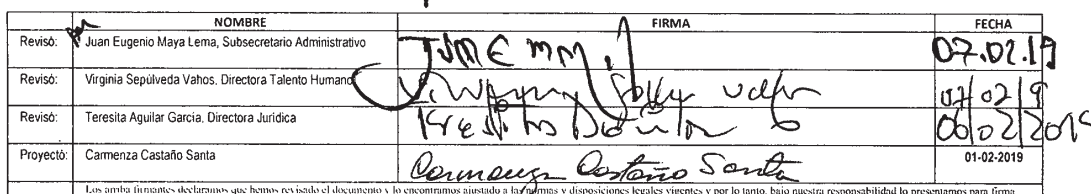 NOMBRE FIRMA FECHA
Revisó: Juan Eugenio Maya Lema, Subsecretario Administrativo 07.02.19
Revisó: Virginia Sepúlveda Vahos, Directora Talento Humano 07/02/19
Revisó: Teresita Aguilar García, Directora Jurídica 06/02/2019
Proyectó: Carmenza Castaño Santa Carmenza Castaño Santa 01-02-2019
Los arriba firmantes declaramos que hemos revisado el documento y lo encontramos ajustado a las normas y disposiciones legales vigentes y por lo tanto, bajo nuestra responsabilidad lo presentamos para firma